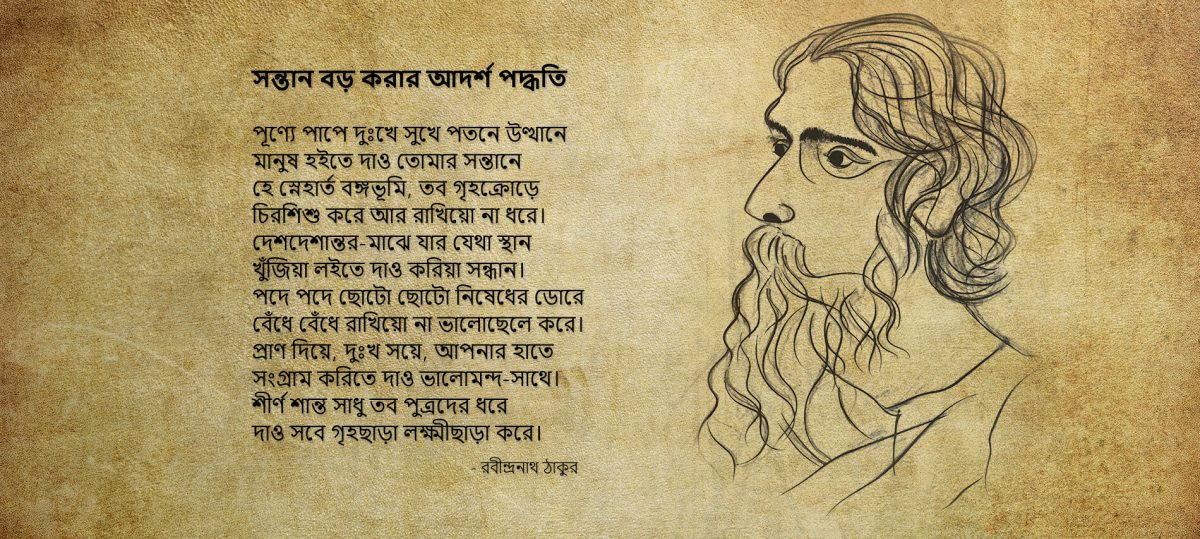 সন্তান বড় করার আদর্শ পদ্ধতি
পূণ্যে পাপে দুঃখে সুখে পতনে উত্থানে
মানুষ হইতে দাও তোমার সন্তানে
হে স্নেহার্ত বঙ্গভূমি, তব গৃহক্রোড়ে
চিরশিশু করে আর রাখিয়ো না ধরে।
দেশদেশান্তর-মাঝে যার যেথা স্থান
খুঁজিয়া লইতে দাও করিয়া সন্ধান।
পদে পদে ছোটো ছোটো নিষেধের ডোরে
বেঁধে বেঁধে রাখিয়ো না ভালোছেলে করে।
প্রাণ দিয়ে, দুঃখ সয়ে, আপনার হাতে
সংগ্রাম করিতে দাও ভালোমন্দ-সাথে।
শীর্ণ শান্ত সাধু তব পুত্রদের ধরে
দাও সবে গৃহছাড়া লক্ষ্মীছাড়া করে।
- রবীন্দ্রনাথ ঠাকুর